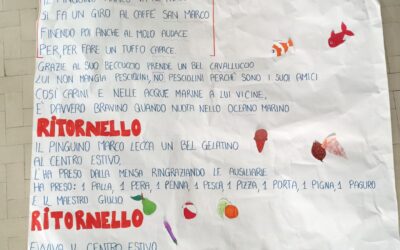 SI FA UN GIRO AL CAFFÈ SAN MARCO
FINENDO POI ANCHE AL MOLO AUDACE
PER PER FARE UN TUFFO CAPACE
GRAZIE AL SUO BECCUCCIO PRENDE UN BEL CAVALLUCCIO
LUI NON MANGIA PESCIOLINI, NO PESCIOLINI PERCHÈ SONO I SUOI AMICI
COSÌ CARINI E NELLE ACQUE MARINE A LUI VICINE,
E' DAVVERO BRAVINO QUANDO NUOTA NELLO OCEANO MARINO
RITORNELLO
IL PINGUINO MARCO LECCA UN BEL GELATINO
AL CENTRO ESTIVO,
L'HA PRESO DALLA MENSA RINGRAZIANDO LE AUSILIARIE.
HA PRESO: 1 PALLA, 1 PERA, 1 PENNA, 1 PESCA, 1 PIZZA, 1 PORTA, 1 PIGNA, 1 PAGURO
E IL MAESTRO GIULIO
RITORNELLO
EVVIVA IL CENTRO ESTIVO